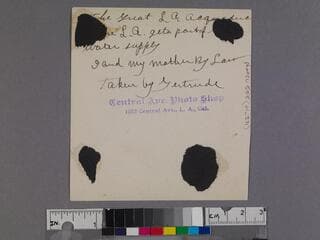 The Great L.A. Aqueduc
re L.A. gets part of
Water supply
I and my mother by Law
Taken by Gertrude
Central Ave. Photo Shop
1022 Central Ave., L. A., Cal.
IN.
CM
1
2
3